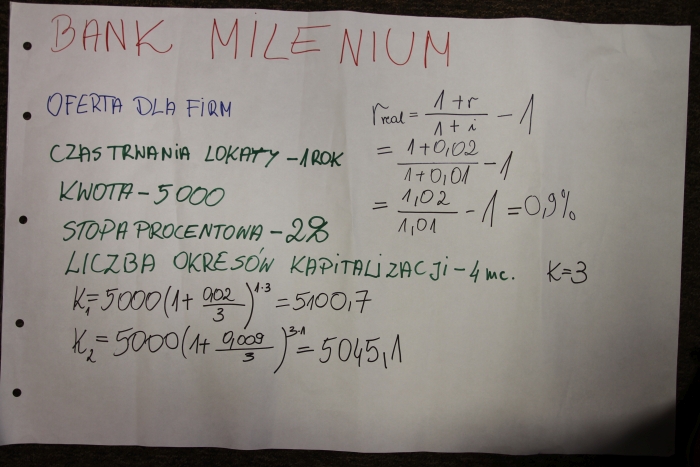 BANK MILENIUM
OFERTA DLA FIRM
CZAS TRWANIA LOKATY – 1 ROK
KWOTA – 5000
STOPA PROCENTOWA – 2%
LICZBA OKRESÓW KAPITALIZACJI – 4 mc. K=3
K₁=5000(1+ 0,02/3)^1·3 = 5100,7
K₂=5000(1+ 0,009/3)^3·1 = 5045,1
r real = 1+r/1+i − 1
= 1+0,02/1+0,01 − 1
= 1,02/1,01 − 1 = 0,9%